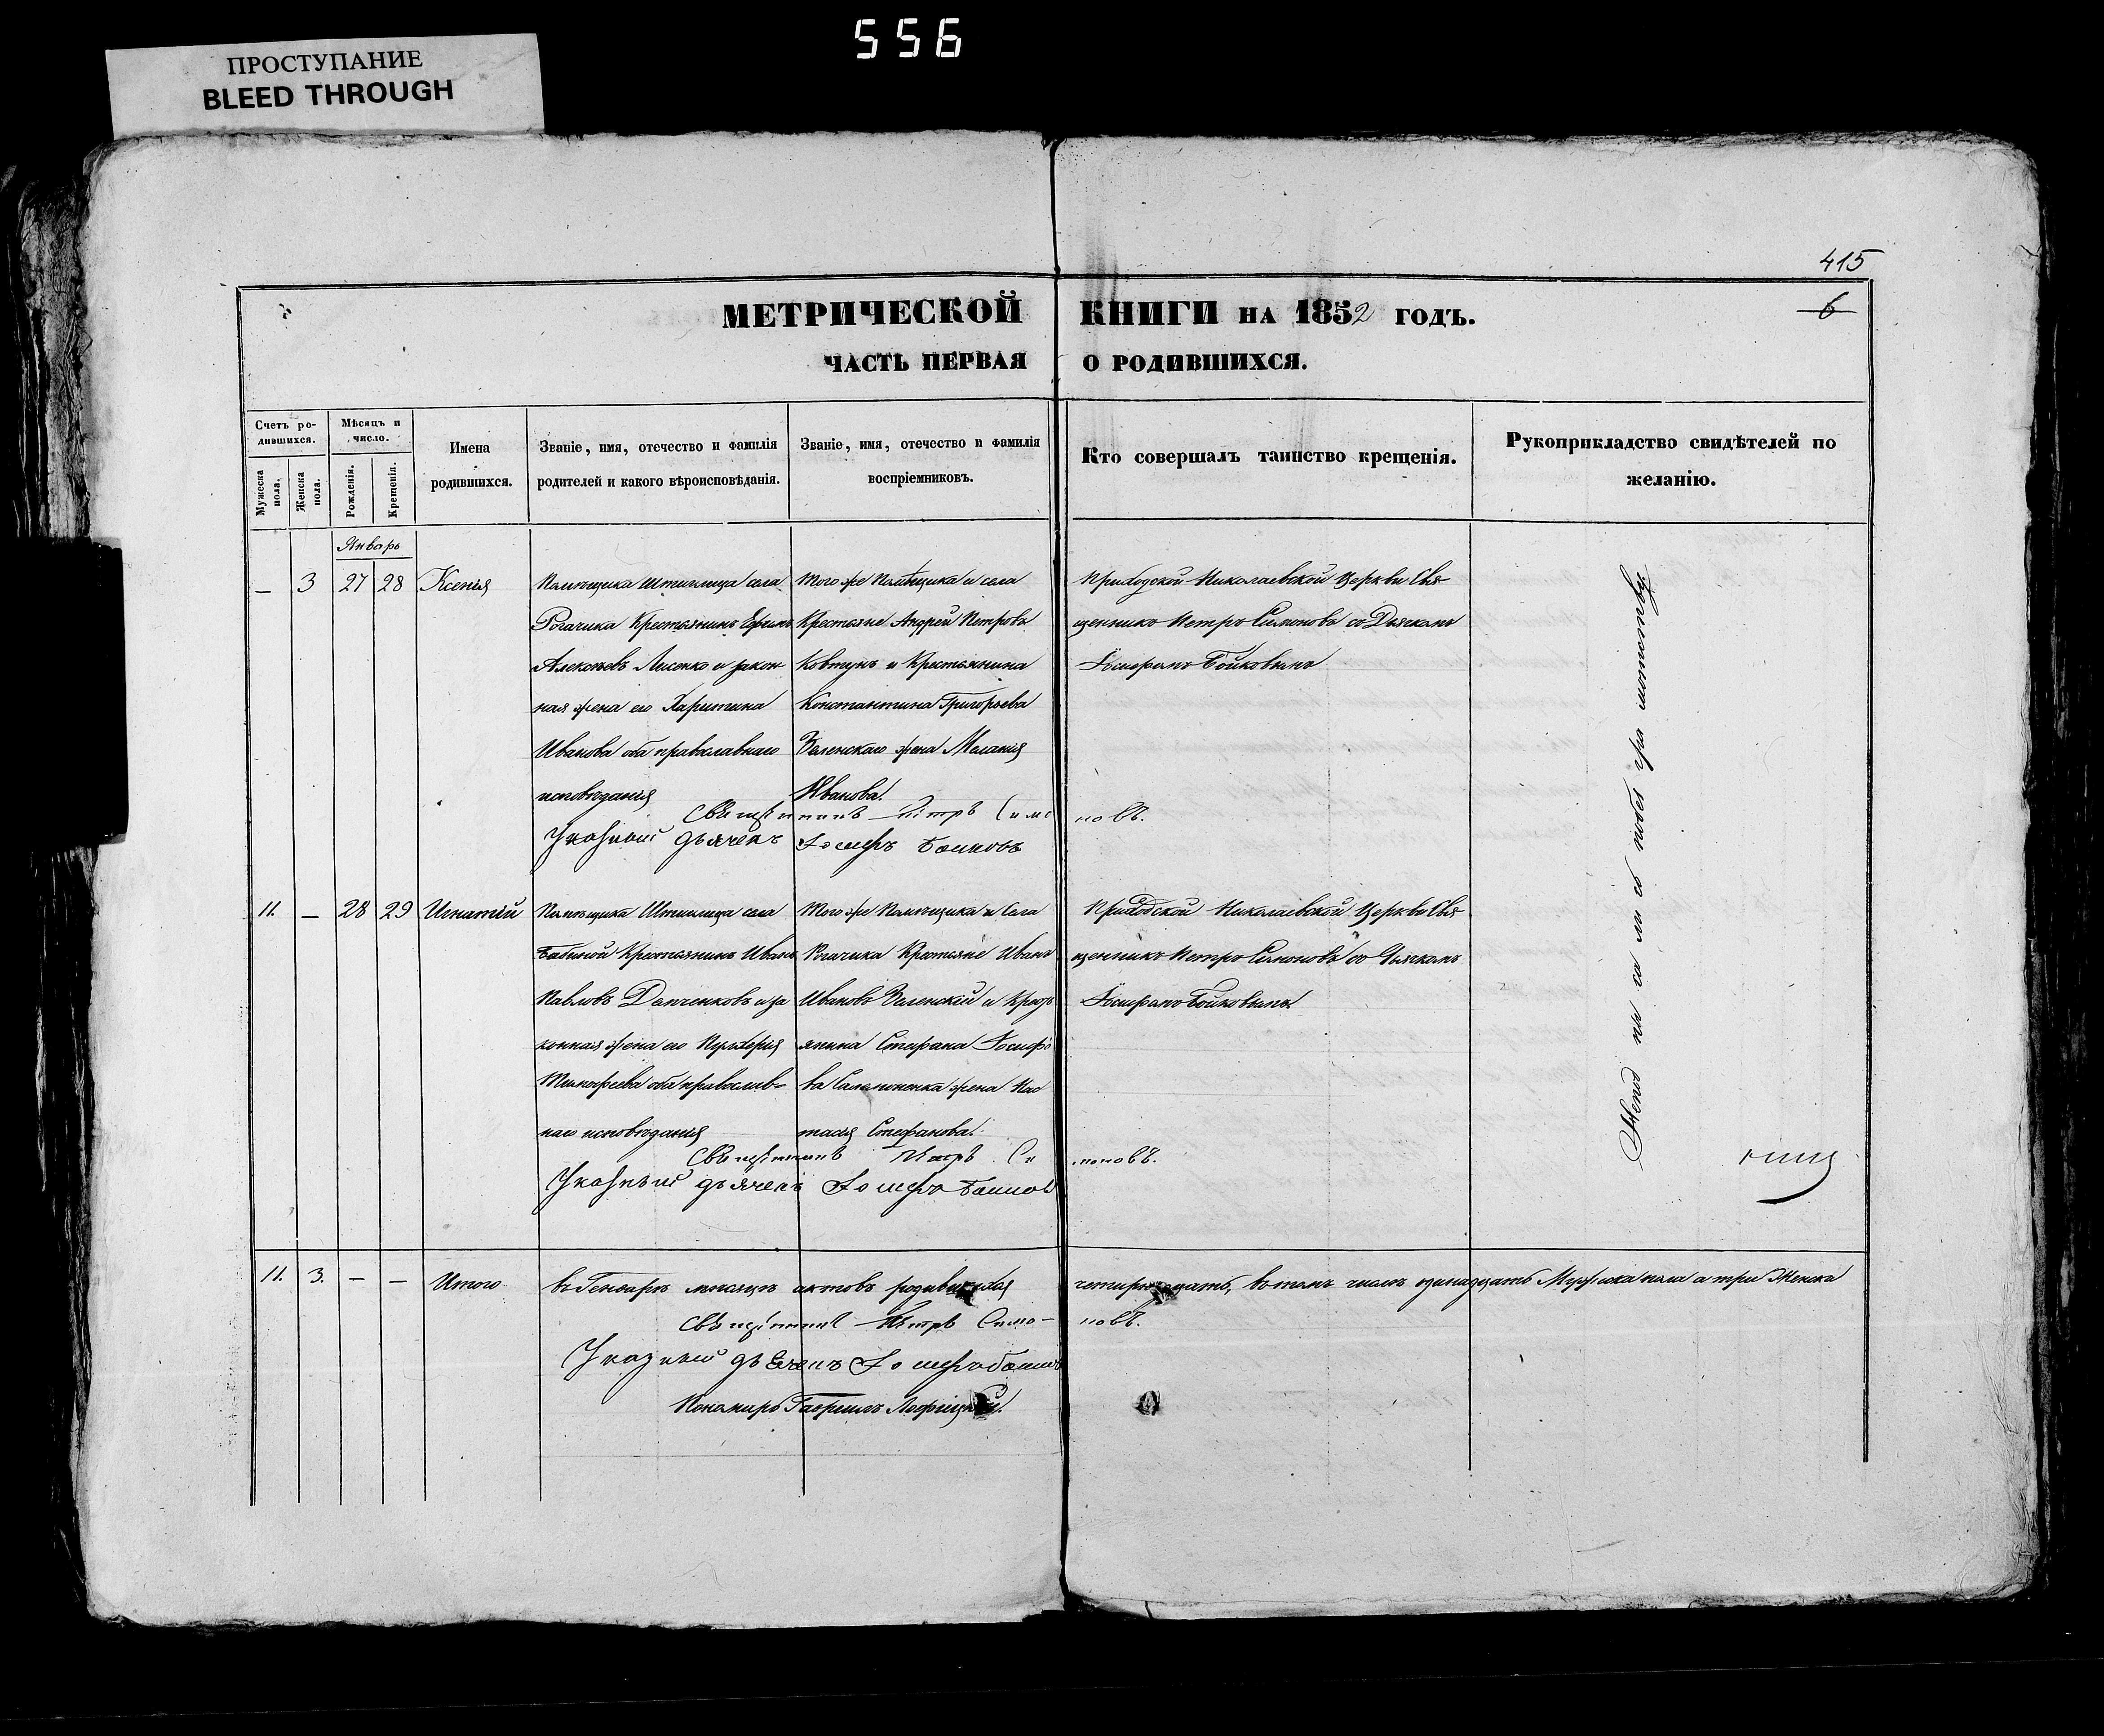 556
ПРОСТУПАНИЕ
BLEED THROUGH
415
6
МЕТРИЧЕСКОЙ КНИГИ НА 1852 ГОДЪ.
ЧАСТЬ ПЕРВАЯ О РОДИВШИХСЯ.
Счетъ родившихся.
Мужеска пола.
Женска пола.
Мѣсяцъ и число.
Рожденія.
Крещенія.
Имена родившихся.
Званіе, имя, отечество и фамилія родителей и какого вѣроисповѣданія.
Званіе, имя, отечество и фамилія воспріемниковъ.
Кто совершалъ таинство крещенія.
Рукоприкладство свидѣтелей по желанію.
Январь
— 3 27 28 Ксенія
Помѣщика Штиглица села
Рогачика Крестьянинъ Ефимъ
Алексѣевъ Лисенко и закон
ная жена его Харитина
Иванова оба православнаго
исповѣданія
Того же Помѣщика и села
Крестьяне Андрей Петровъ
Ковтунъ и Крестьянина
Константина Григорьева
Зеленскаго жена Меланія
Иванова.
Приходской Николаевской Церкви Свя
щенникъ Петръ Симоновъ со Дьячкомъ
Іосифомъ Бойковымъ
Священникъ Петръ Симоновъ.
Указный дьячекъ Іосифъ Бойковъ
11. — 28 29 Игнатій
Помѣщика Штиглица села
Крестьянинъ Иванъ
Павловъ и за
конная жена его Пульхерія
Тимофѣева оба православ
наго исповѣданія
Того же Помѣщика и Села
Рогачика Крестьяне Иванъ
Ивановъ Зеленскій и Крест
янина Стефана Іосифо
ва жена Нас
тасія Стефанова.
Приходской Николаевской Церкви Свя
щенникъ Петръ Симоновъ со Дьячкомъ
Іосифомъ Бойковымъ
Священникъ Петръ Симоновъ.
Указный дьячекъ Іосифъ Бойковъ
11. 3. — — Итого
въ Генварѣ мѣсяцѣ актовъ родившихся четырнадцать, въ томъ числѣ одинадцать Мужеска пола а три Женска
Священникъ Петръ Симоновъ.
Указный дьячекъ Іосифъ Бойковъ
Пономарь Гавріилъ